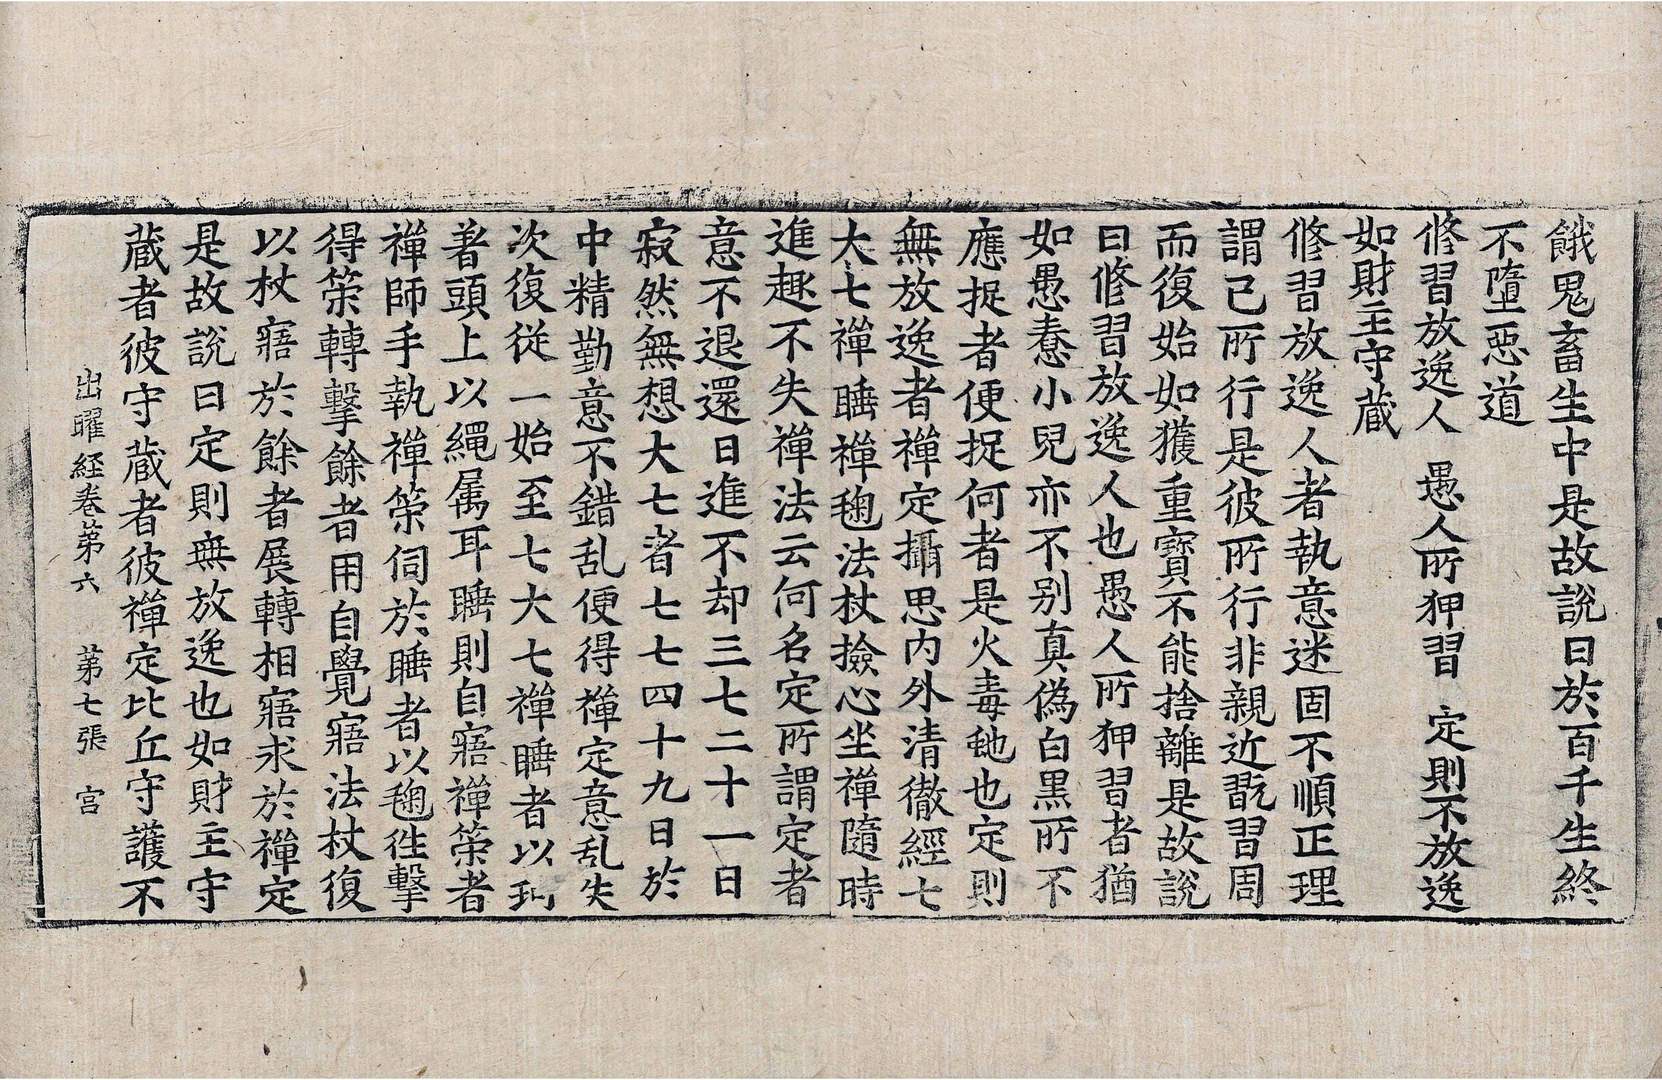 餓鬼畜生中是故說曰於百千生終
不墮惡道
修習放逸人　愚人所狎習　定則不放逸
如財主守蔵
修習放逸人者執意迷固不順正理
謂己所行是彼所行非親近翫習周
而復始如獲重寳不能捨離是故說
曰修習放逸人也愚人所狎習者猶
如愚惷小兒亦不别真偽白黒所不
應捉者便捉何者是火毒虵也定則
無放逸者禪定攝思内外清徹經七
大七禪睡禪毱法杖撿心坐禪隨時
進趣不失禪法云何名定所謂定者
意不退還日進不却三七二十一日
寂然無想大七者七七四十九日於
中精勤意不錯乱便得禪定意乱失
次復從一始至七大七禪睡者以
著頭上以繩属耳睡則自寤禪䇿者
禪師手執禪䇿伺於睡者以毱徃擊
得䇿轉擊餘者用自覺寤法杖復
以杖寤於餘者展轉相寤求於禪定
是故說曰定則無放逸也如財主守
蔵者彼守蔵者彼禪定比丘守護不
出曜経卷苐六　苐七張　宫